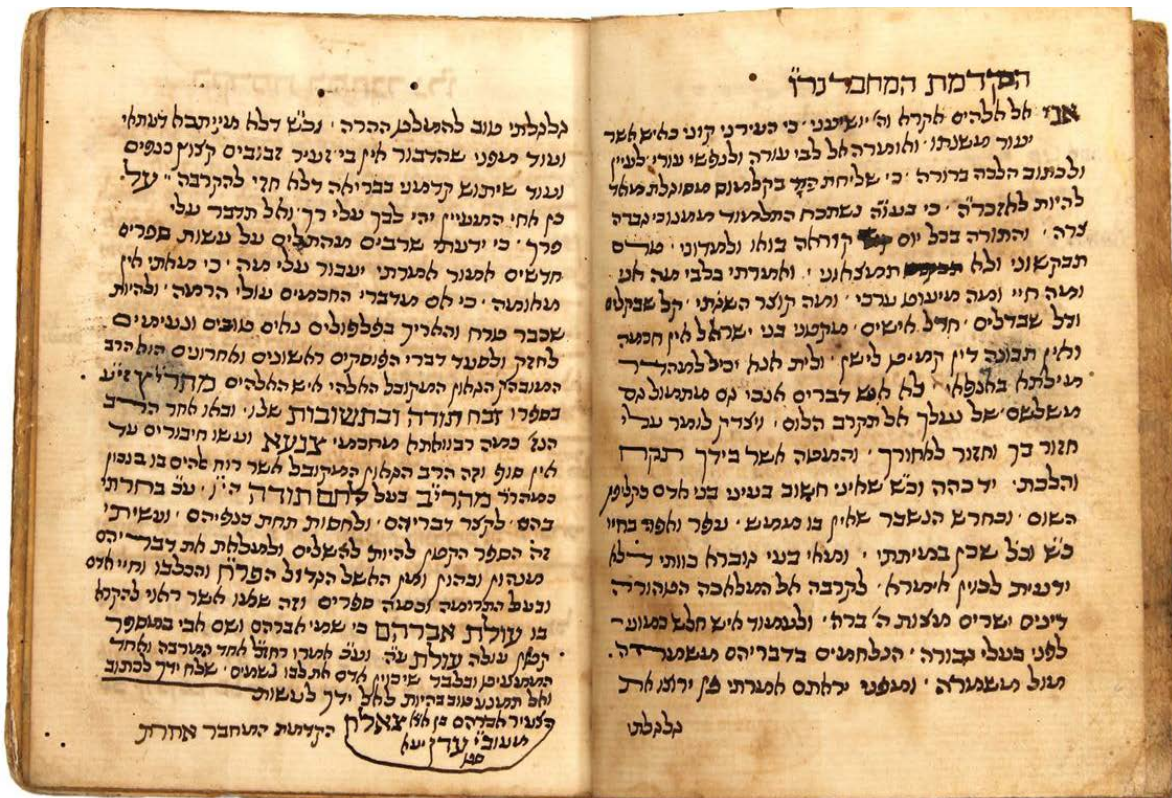 הקדמת המחבר נר"ו
אני אל אלהים אקרא וה' יושיעני · כי העירני קוני כאיש אשר
יעור משנתו · ואומרה אל לבי עורה ולנפשי עורי לעיין
ולכתוב הלכה ברורה · כי שליחת היד בקלמוס מסוגלת מאד
להיות לאזכרה · כי בעו"ה נשתכח התלמוד ממנו כי גברה
צרה · והתורה בכל יום קוראה בואו ולמדוני · טרם
תבקשוני ולא תמצאנני · ואמרתי בלבי מה אני
ומה חיי ומה מיעוט ערכי · ומה קוצר השגתי · קל שבקלים
ודל שבדלים · חדל אישים · מקטני בני ישראל אין חכמה
ואין תבונה דין קמיט לישן · ולית אנא יכיל למהדר
מילתא באנפאי · לא איש דברים אנכי גם מתמול גם
משלשם · של נעלך אל תקרב הלום · ויצדק לומר עלי
חזור בך וחזור לאחורך · והמטה אשר בידך תקח
והלכת · יד כהה וכ"ש שאיני חשוב בעיני בני אדם כקליפת
השום · וכחרש הנשבר שאין בו ממש · עפר ואפר בחיי
כ"ש וכל שכן במיתתי · ומאי בעי גברא כוותי דלא
ידעית לכוין אימרא · לקרבה אל המלאכה הטהורה
דינים ישרים מצות ה' ברה · ולעמוד איש חלש כמוני
לפני בעלי גבורה · הנלחמים בדבריהם משמרה ·
מול משמרה · ומפני יראתם אמרתי מן ירוצו את
גלגלתי
גלגלתי טוב להמלט ההרה · וכ"ש דלא מייתבא דעתאי
ועוד מפני שהדבור אין בי זעיר זבובים קצוץ כנפים
ועוד שיתוש קדמני בבריאה דלא חזי להקרבה · על
כן אחי המעיין יהי לבך עלי רך ואל תדבר עלי
פרך · כי ידעתי שרבים מהתלים על עשות ספרים
חדשים אמור אמרתי יעבור עלי מה · כי מאתי אין
מאומה · כי אם מדברי החכמים עולי הרמה · ולהיות
שכבר טרח והאריך בפלפולים נאים טובים ונעימים
לחזק ולסעד דברי הפוסקים ראשונים ואחרונים הוא הרב
המובהק הגאון המקובל האלהי איש האלהים מהרי"ץ זי"ע
בספרו זבח תודה ובתשובות שלו · ובאו אחר הרב
הנז' כמה רבוואתא מחכמי צנעא ועשו חיבורים עד
אין סוף וזה הרב הגאון המקובל אשר רוח אלהים בו בנכון
כמהר"ר מהרי"ב בעל לחם תודה הי"ו · ע"כ בחרתי
בהם · לקצר דבריהם · ולחסות תחת כנפיהם · ועשיתי
זה הספר הקטן להיות לאשלים ולמלאת את דבריהם
מנהון ובהון ומן האשל הגדול הפר"ח והכלבו וחיי אדם
ובעל התרומה וכמה ספרים וזה שמו אשר ראני להקרא
בו עולת אברהם כי שמי אברהם ושם אבי במספר
קטן עולה עולת ע"ה · וע"כ אמרו רז"ל אחד המרבה ואחד
הממעיט ובלבד שיכוין אדם את לבו לשמים · שלח ידך לכתוב
ואל תמנע טוב בהיות לאל ידך לעשות
הצעיר אברהם בן צאלח
מעוב"י עדן יע"א
ס"ט
הקדמת המחבר אחרת